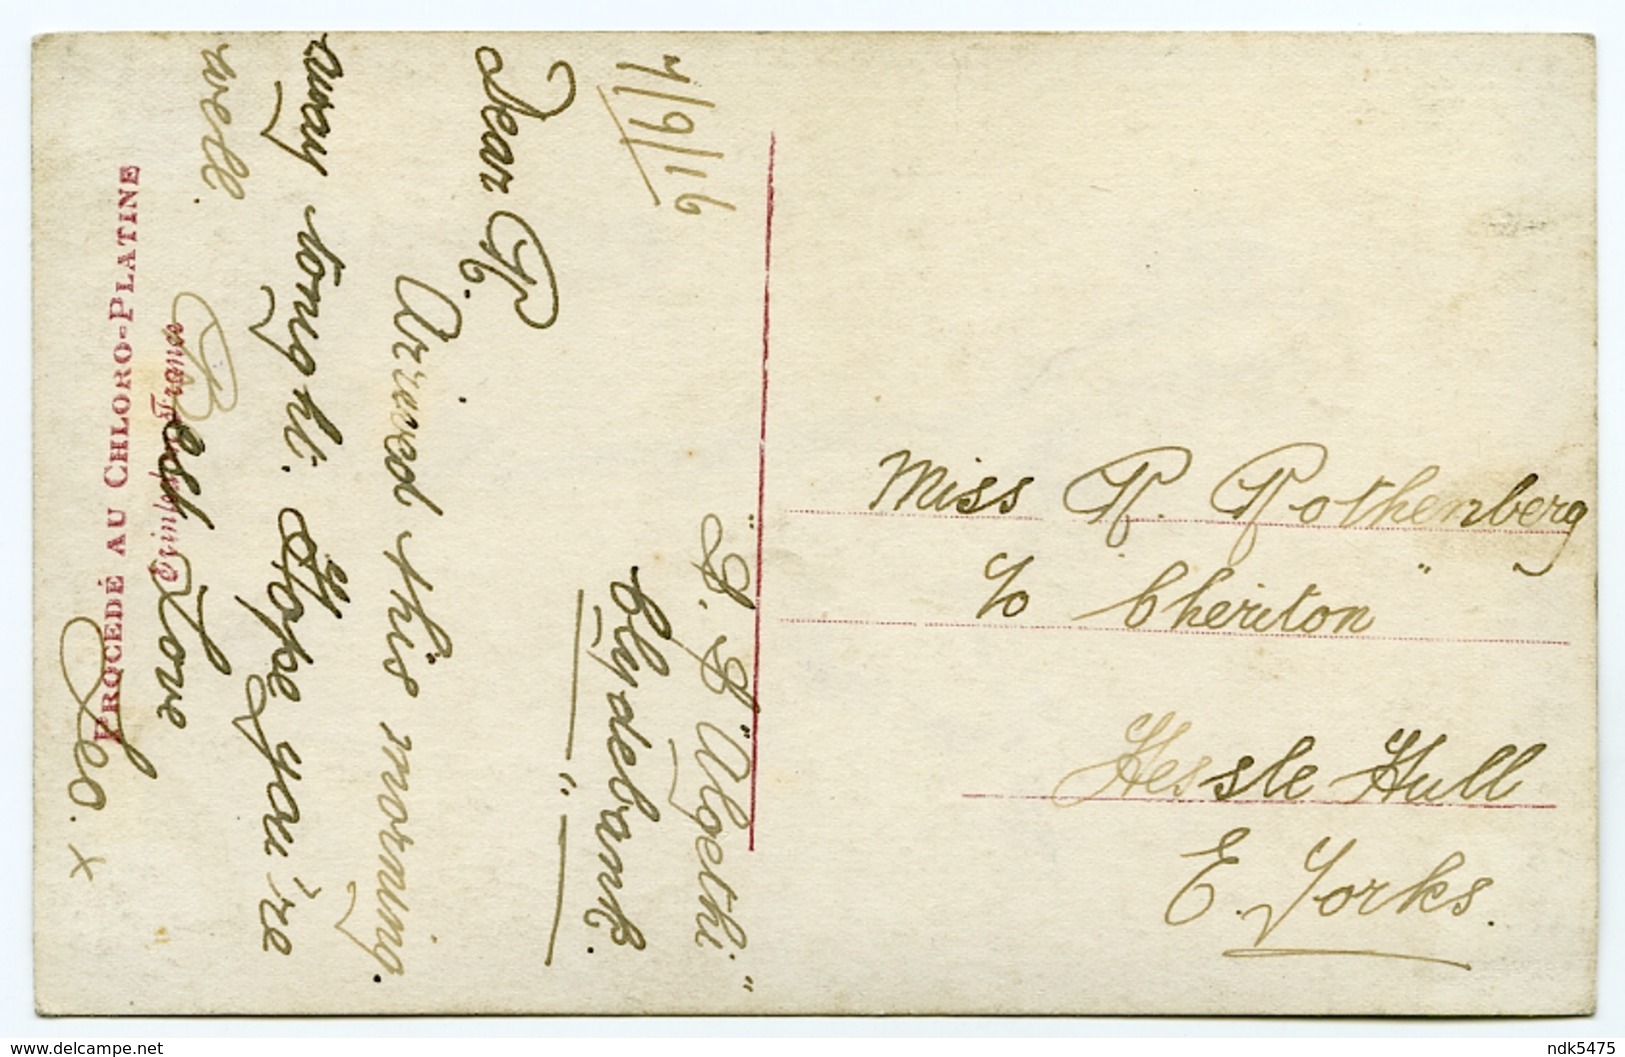 "S.S. "Algethi"
Clydebank.
"
7/9/16
Dear R.
Arrived this morning.
away tonight. Hope you're
well.
Best Love
Leo. x
PROCÉDÉ AU CHLORO-PLATINE
Miss R. Rothenberg
c/o Cheriton "
Hessle Hull
E. Yorks.
www.delcampe.net
ndk5475